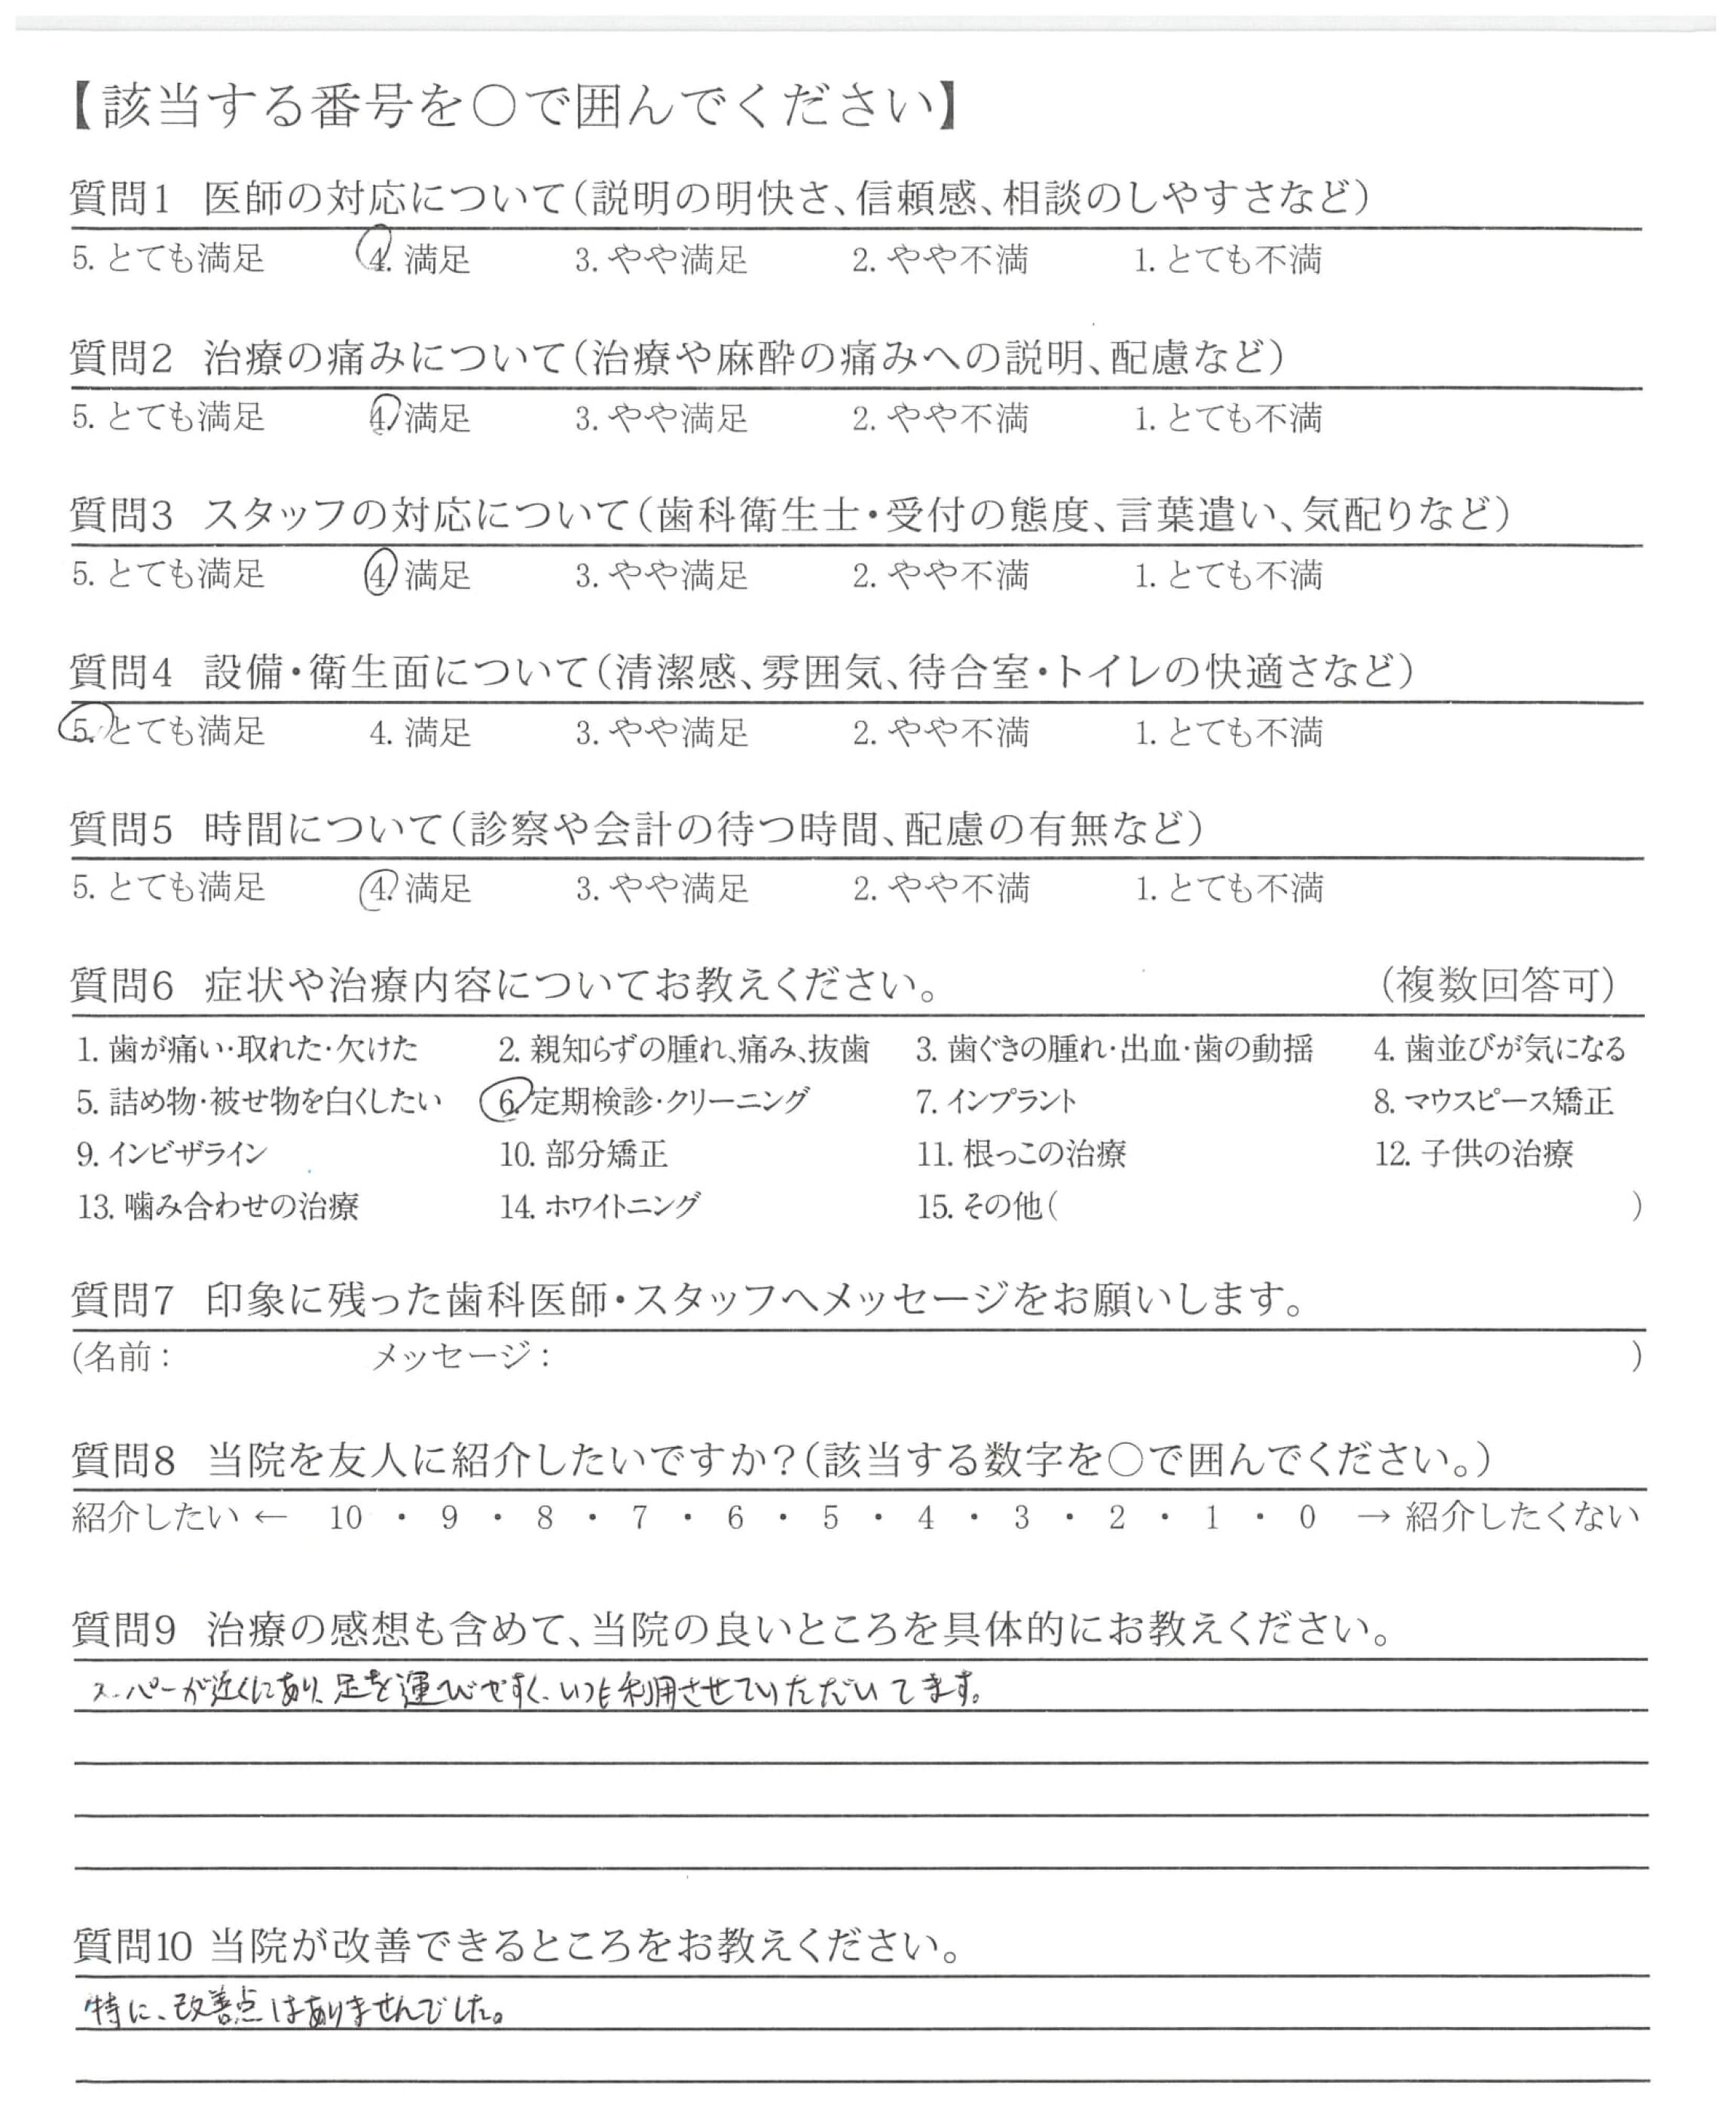 【該当する番号を〇で囲んでください】
質問1 医師の対応について(説明の明快さ、信頼感、相談のしやすさなど)
5. とても満足 4. 満足 3. やや満足 2. やや不満 1. とても不満
質問2 治療の痛みについて(治療や麻酔の痛みへの説明、配慮など)
5. とても満足 4. 満足 3. やや満足 2. やや不満 1. とても不満
質問3 スタッフの対応について(歯科衛生士・受付の態度、言葉遣い、気配りなど)
5. とても満足 4. 満足 3. やや満足 2. やや不満 1. とても不満
質問4 設備・衛生面について(清潔感、雰囲気、待合室・トイレの快適さなど)
5. とても満足 4. 満足 3. やや満足 2. やや不満 1. とても不満
質問5 時間について(診察や会計の待つ時間、配慮の有無など)
5. とても満足 4. 満足 3. やや満足 2. やや不満 1. とても不満
質問6 症状や治療内容についてお教えください。 (複数回答可)
1. 歯が痛い・取れた・欠けた 2. 親知らずの腫れ、痛み、抜歯 3. 歯ぐきの腫れ・出血・歯の動揺 4. 歯並びが気になる
5. 詰め物・被せ物を白くしたい 6. 定期検診・クリーニング 7. インプラント 8. マウスピース矯正
9. インビザライン 10. 部分矯正 11. 根っこの治療 12. 子供の治療
13. 噛み合わせの治療 14. ホワイトニング 15. その他( )
質問7 印象に残った歯科医師・スタッフへメッセージをお願いします。
(名前: メッセージ: )
質問8 当院を友人に紹介したいですか?(該当する数字を〇で囲んでください。)
紹介したい ← 10 ・ 9 ・ 8 ・ 7 ・ 6 ・ 5 ・ 4 ・ 3 ・ 2 ・ 1 ・ 0 → 紹介したくない
質問9 治療の感想も含めて、当院の良いところを具体的にお教えください。
スーパーが近くにあり、足を運びやすく、いつも利用させていただいてます。
質問10 当院が改善できるところをお教えください。
特に、改善点はありませんでした。